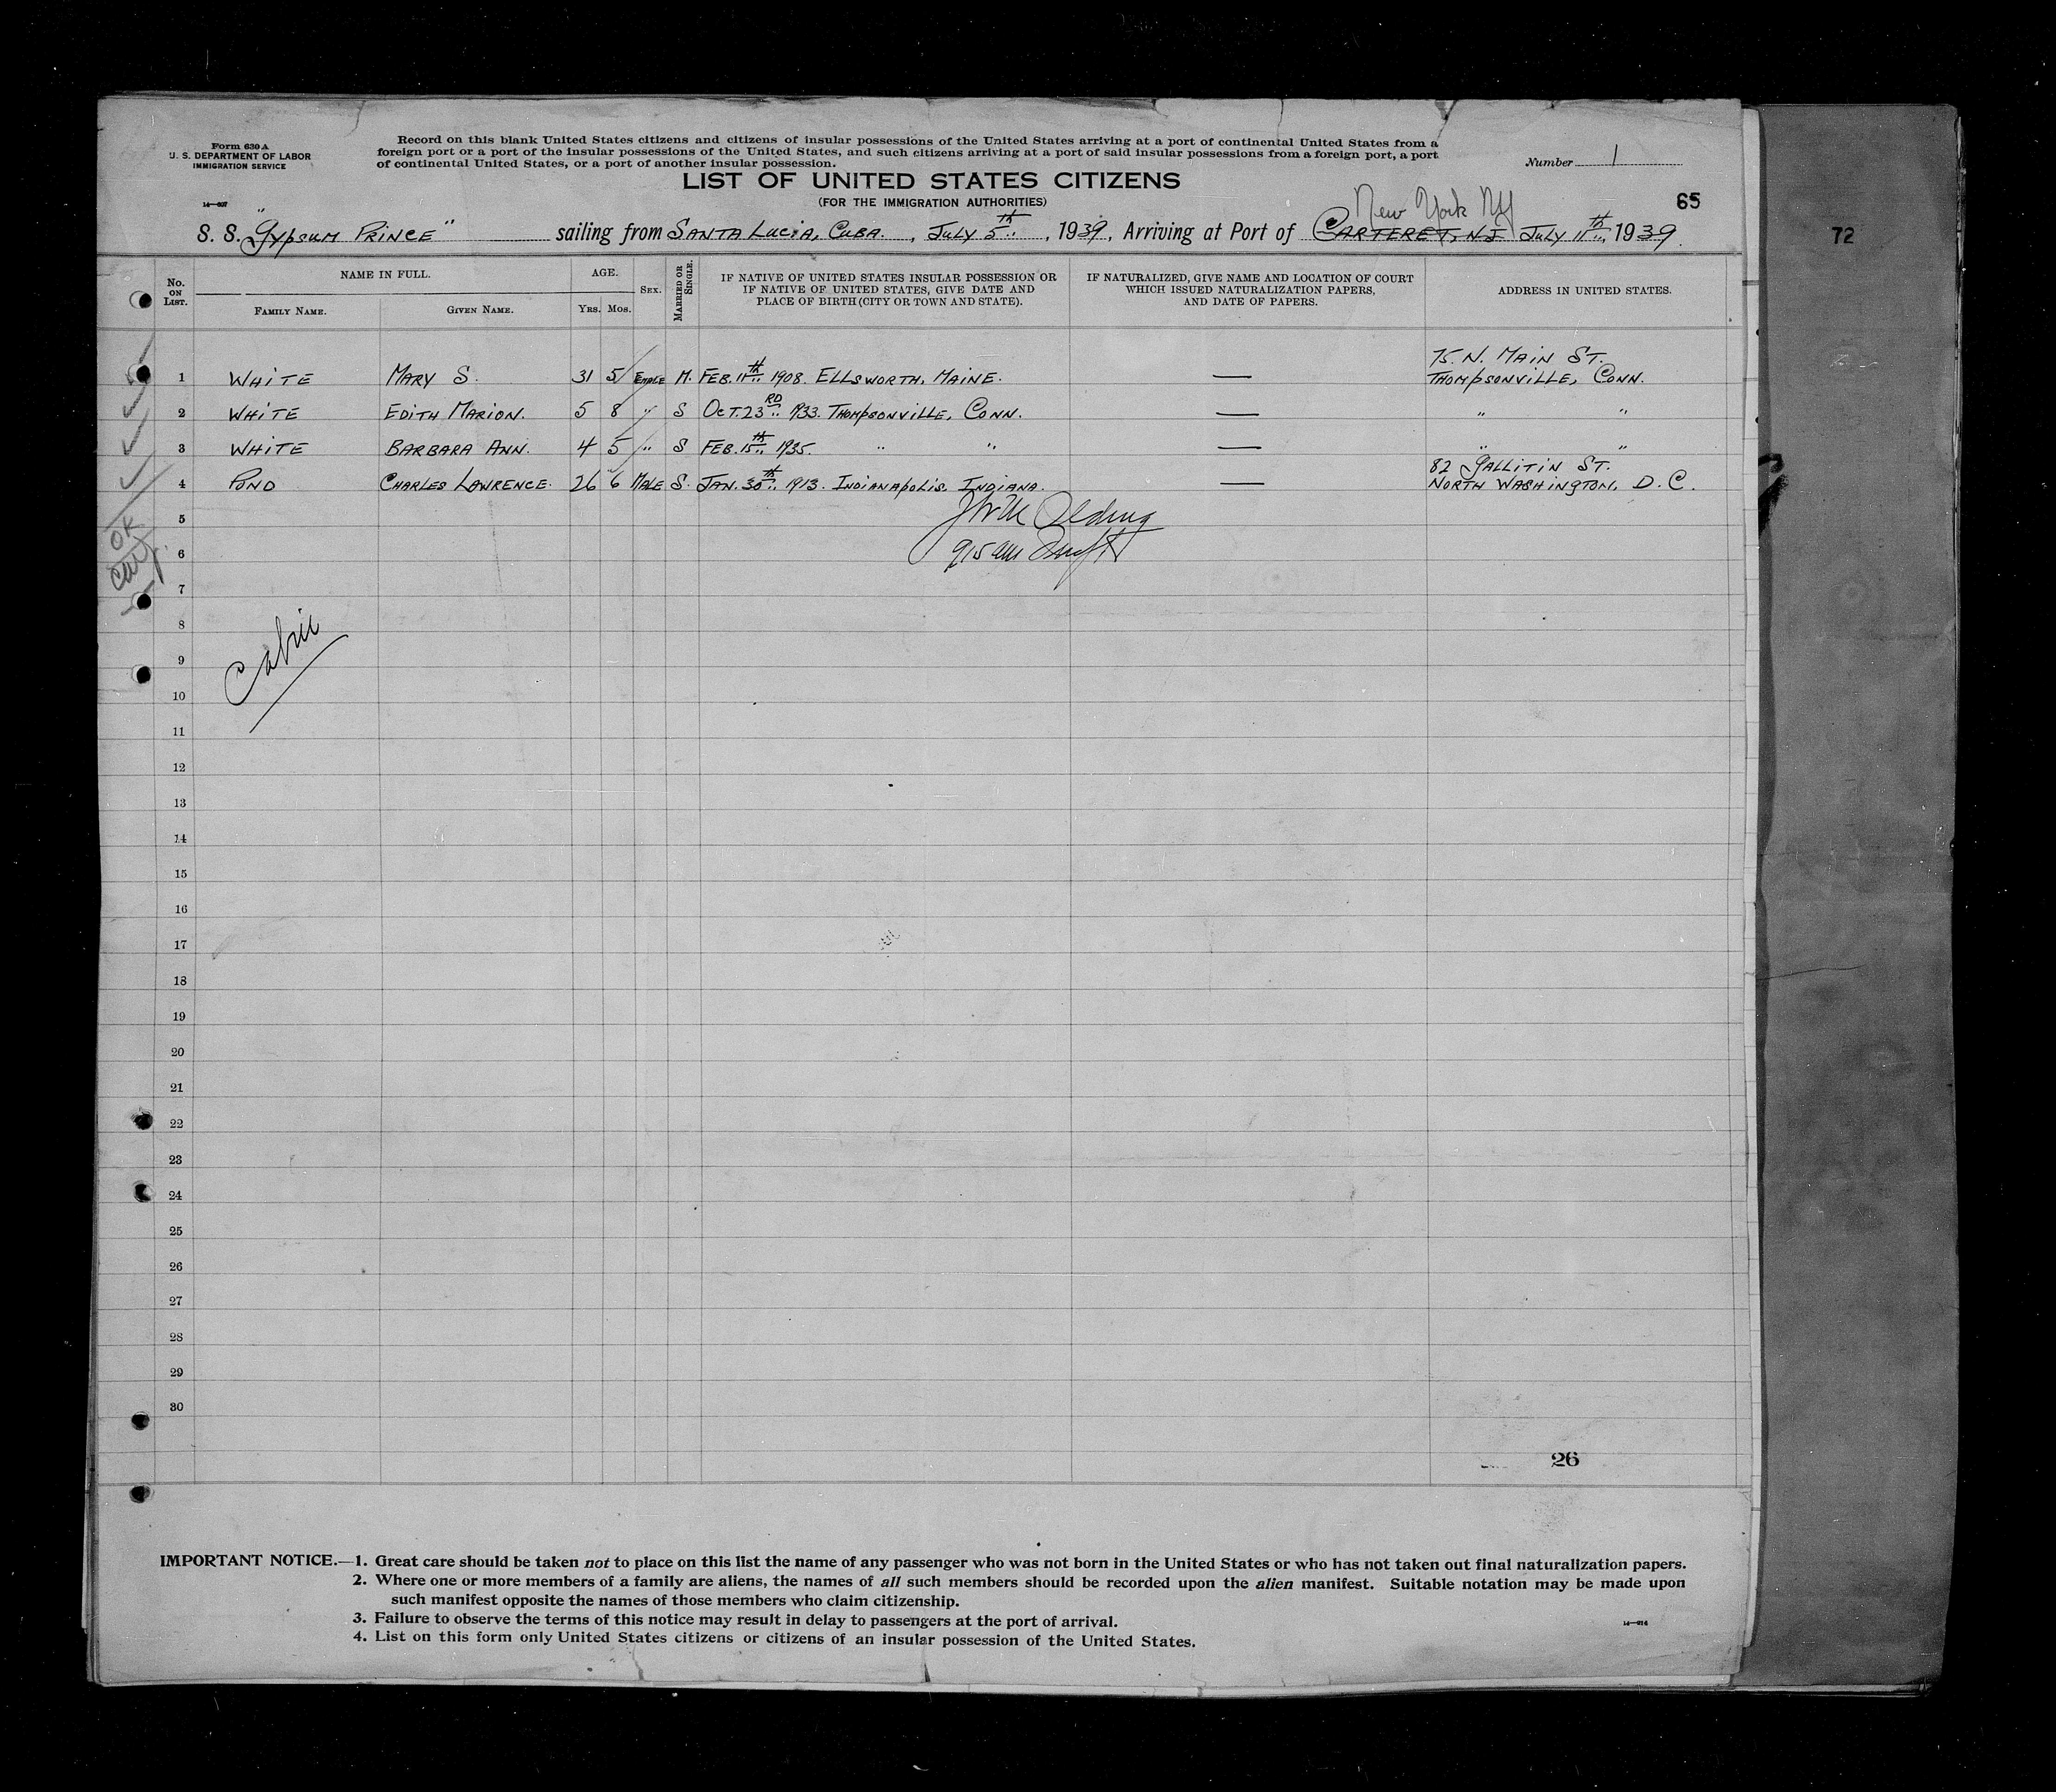 Form 630 A
U. S. DEPARTMENT OF LABOR
IMMIGRATION SERVICE
14—607
Record on this blank United States citizens and citizens of insular possessions of the United States arriving at a port of continental United States from a
foreign port or a port of the insular possessions of the United States, and such citizens arriving at a port of said insular possessions from a foreign port, a port
of continental United States, or a port of another insular possession.
Number 1
LIST OF UNITED STATES CITIZENS
(FOR THE IMMIGRATION AUTHORITIES)
65
72
New York NY
S. S. "Gypsum Prince" sailing from Santa Lucia, Cuba. , July 5th , 1939, Arriving at Port of Carteret, NJ July 11th, 1939.
No. on List.
NAME IN FULL.
Family Name.
Given Name.
AGE.
Yrs. Mos.
Sex.
Married or Single.
IF NATIVE OF UNITED STATES INSULAR POSSESSION OR
IF NATIVE OF UNITED STATES, GIVE DATE AND
PLACE OF BIRTH (CITY OR TOWN AND STATE).
IF NATURALIZED, GIVE NAME AND LOCATION OF COURT
WHICH ISSUED NATURALIZATION PAPERS,
AND DATE OF PAPERS.
ADDRESS IN UNITED STATES.
75. N. Main St.
1 White Mary S. 31 5 M. Feb. 11th 1908. Ellsworth, Maine. — Thompsonville, Conn.
2 White Edith Marion. 5 8 " S Oct. 23rd 1933. Thompsonville, Conn. — " "
3 White Barbara Ann. 4 5 " S Feb. 15th 1935. " " — " "
82 Gallitin St.
4 Pond Charles Lawrence. 26 6 Male S. Jan. 30th 1913. Indianapolis, Indiana. — North Washington, D.C.
5
OK
6
915 am
7
8
Cabin
9
10
11
12
13
14
15
16
17
18
19
20
21
22
23
24
25
26
27
28
29
30
26
IMPORTANT NOTICE.—1. Great care should be taken not to place on this list the name of any passenger who was not born in the United States or who has not taken out final naturalization papers.
2. Where one or more members of a family are aliens, the names of all such members should be recorded upon the alien manifest. Suitable notation may be made upon
such manifest opposite the names of those members who claim citizenship.
3. Failure to observe the terms of this notice may result in delay to passengers at the port of arrival.
4. List on this form only United States citizens or citizens of an insular possession of the United States.